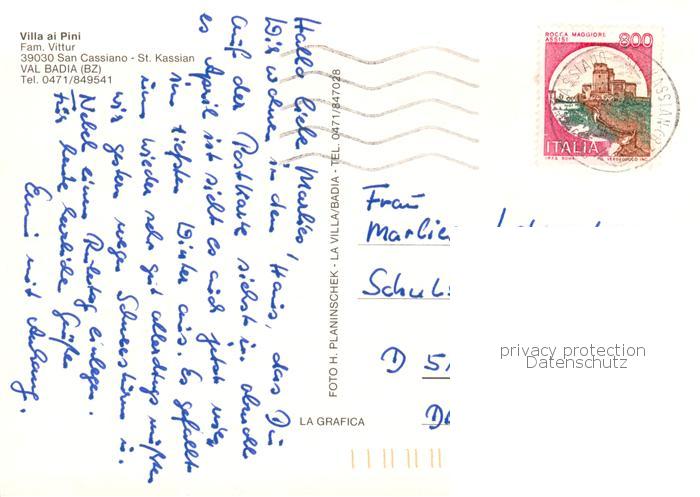 Villa ai Pini
Fam. Vittur
39030 San Cassiano - St. Kassian
VAL BADIA (BZ)
Tel. 0471/849541
Hallo liebe Marlies!
Wir wohnen in dem Haus, das Du
auf der Postkarte siehst u. obwohl
es April ist sieht es auch jetzt wie
im tiefsten Winter aus. Es gefällt
uns wieder sehr gut allerdings mußten
wir gestern wegen Schneesturm u.
Nebel einen Ruhetag einlegen.
Für heute herzliche Grüße
mit Anhang.
FOTO H. PLANINSCHEK - LA VILLA/BADIA - TEL. 0471/847028
LA GRAFICA
ROCCA MAGGIORE
ASSISI
800
ITALIA
Frau
Schuls
D
privacy protection
Datenschutz